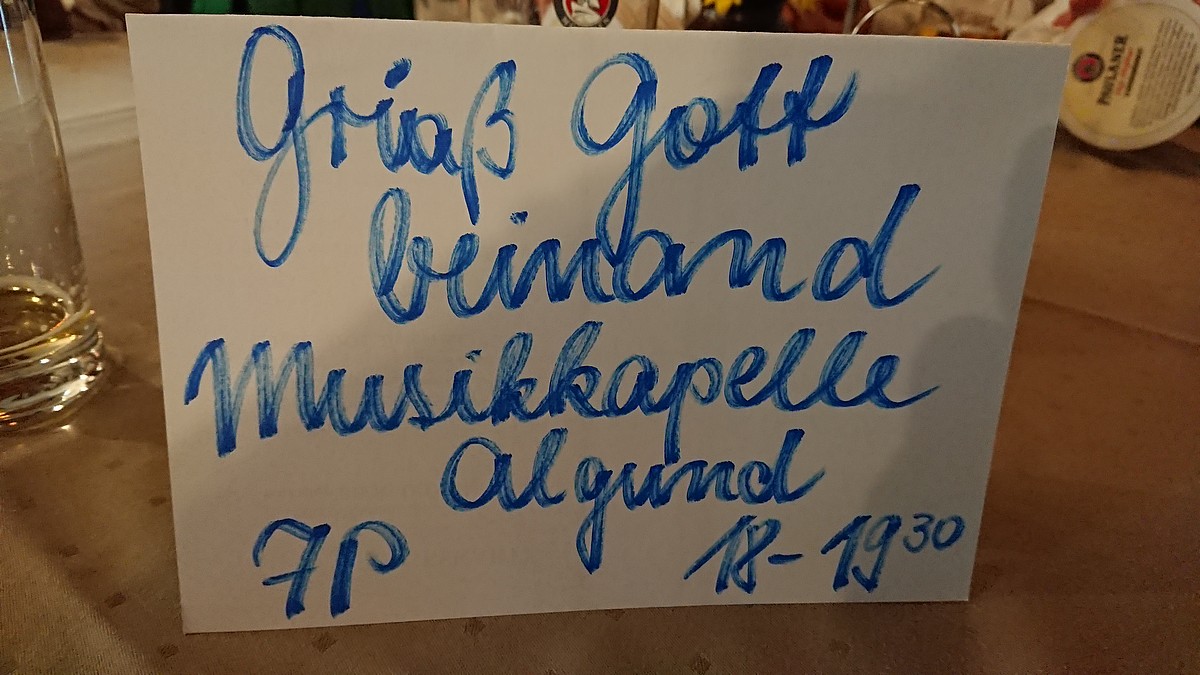 Griaß Gott
beinand
Musikkapelle
Algund
7P 18-19³⁰
PAULANER